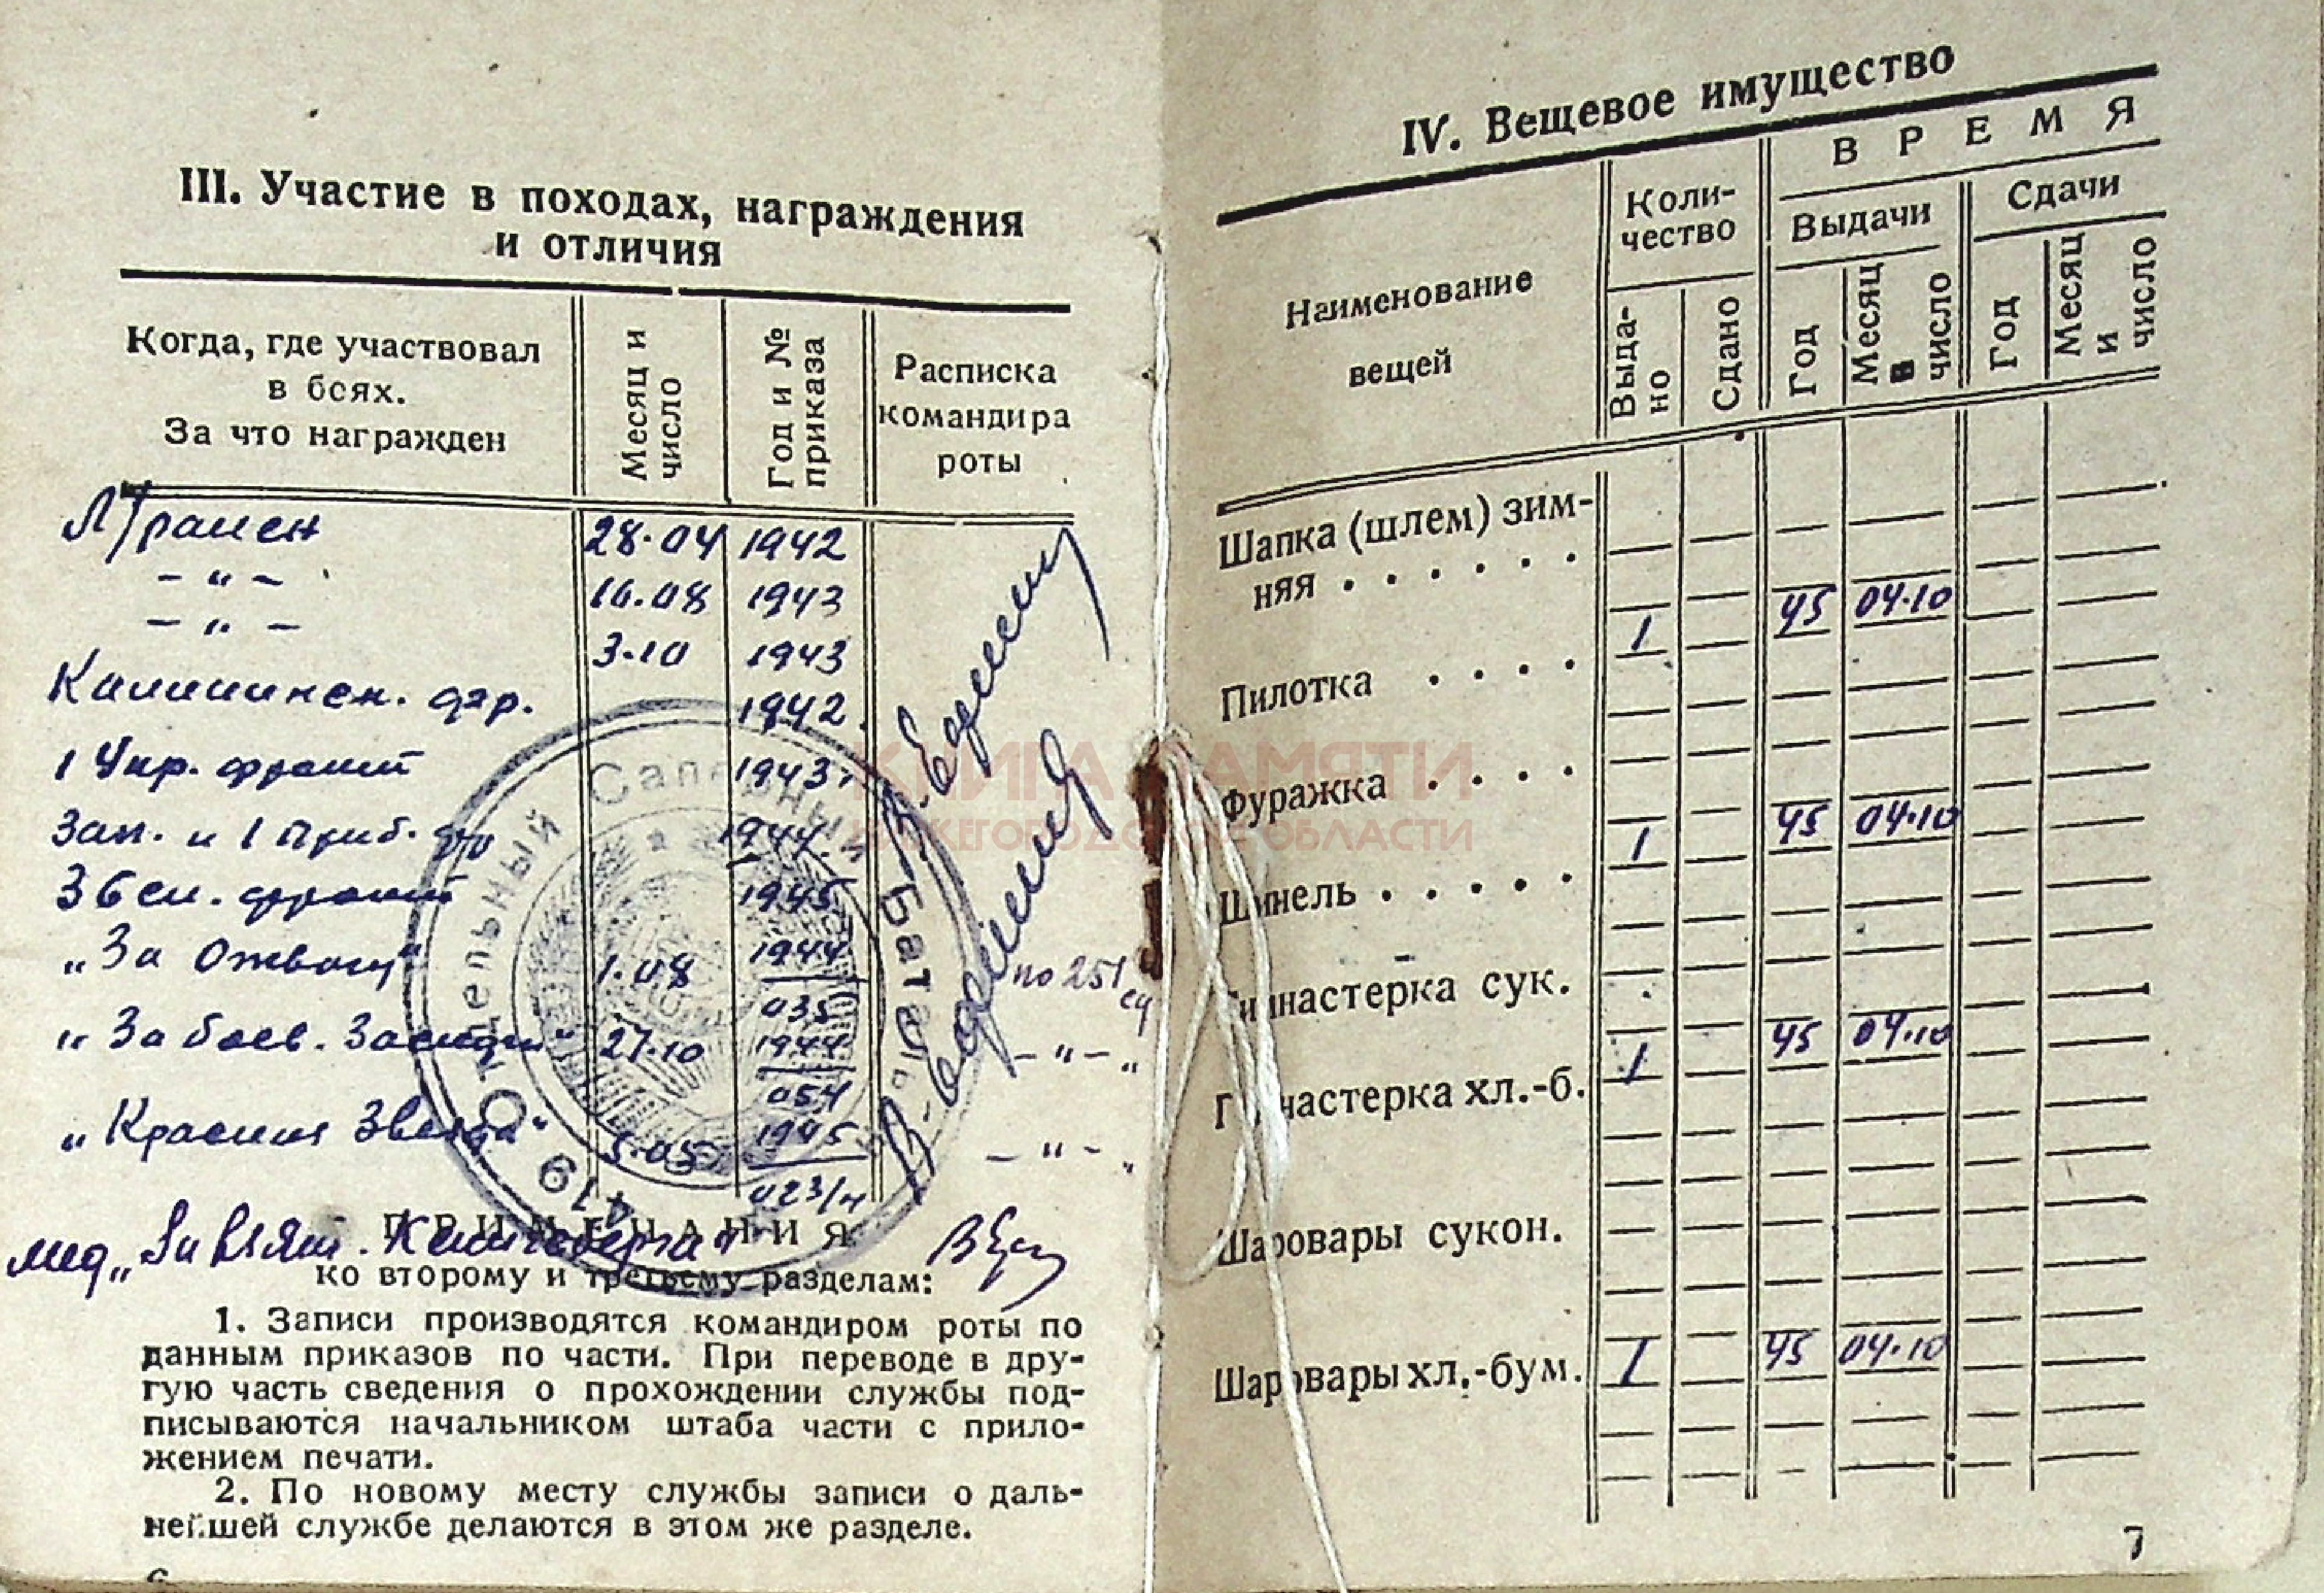 III. Участие в походах, награждения
и отличия
Когда, где участвовал
в боях.
За что награжден
Месяц и
число
Год и №
приказа
Расписка
командира
роты
Л/ранен 28.04 1942
- " - 16.08 1943
- " - 3.10 1943
Калининск. фр. 1942
1 Укр. фронт 1943
Зап. и 1 Приб. фр 1944
3 Бел. фронт 1945
"За Отвагу" 1.08 1944 по 251 сд
035
"За боев. Заслуги" 27.10 1944 - " - "
054
"Красная Звезда" 5.05 1945 - " - "
023/н
ПРИМЕЧАНИЯ
мед "За взят. Кенигсберга"
ко второму и третьему разделам:
1. Записи производятся командиром роты по
данным приказов по части. При переводе в дру-
гую часть сведения о прохождении службы под-
писываются начальником штаба части с прило-
жением печати.
2. По новому месту службы записи о даль-
нейшей службе делаются в этом же разделе.
6
419 Отдельный Саперный Батальон
КНИГА ПАМЯТИ
НИЖЕГОРОДСКОЙ ОБЛАСТИ
IV. Вещевое имущество
Наименование
вещей
Коли-
чество
ВРЕМЯ
Выдачи
Сдачи
Выда-
но
Сдано
Год
Месяц
и
число
Год
Месяц
и
число
Шапка (шлем) зим-
няя . . . . . .
Пилотка . . . . 1 45 04.10
Фуражка . . . .
Шинель . . . . . 1 45 04.10
Гимнастерка сук.
Гимнастерка хл.-б. 1 45 04.10
Шаровары сукон.
Шаровары хл.-бум. 1 45 04.10
7